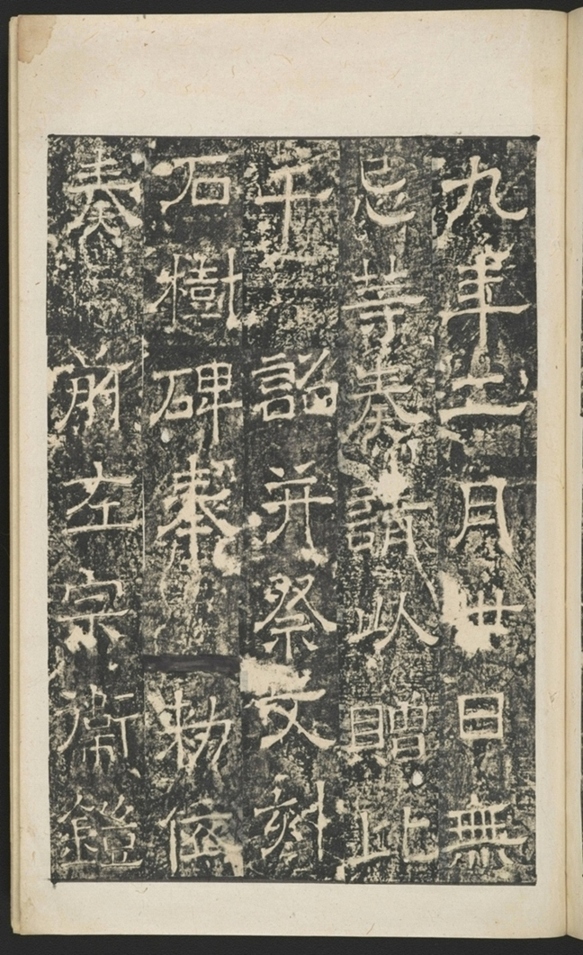 九年二月廿日無
忌等奏請以贈比
干詔并祭文刻
石樹碑奉勅依
奏前左宗衛鎧